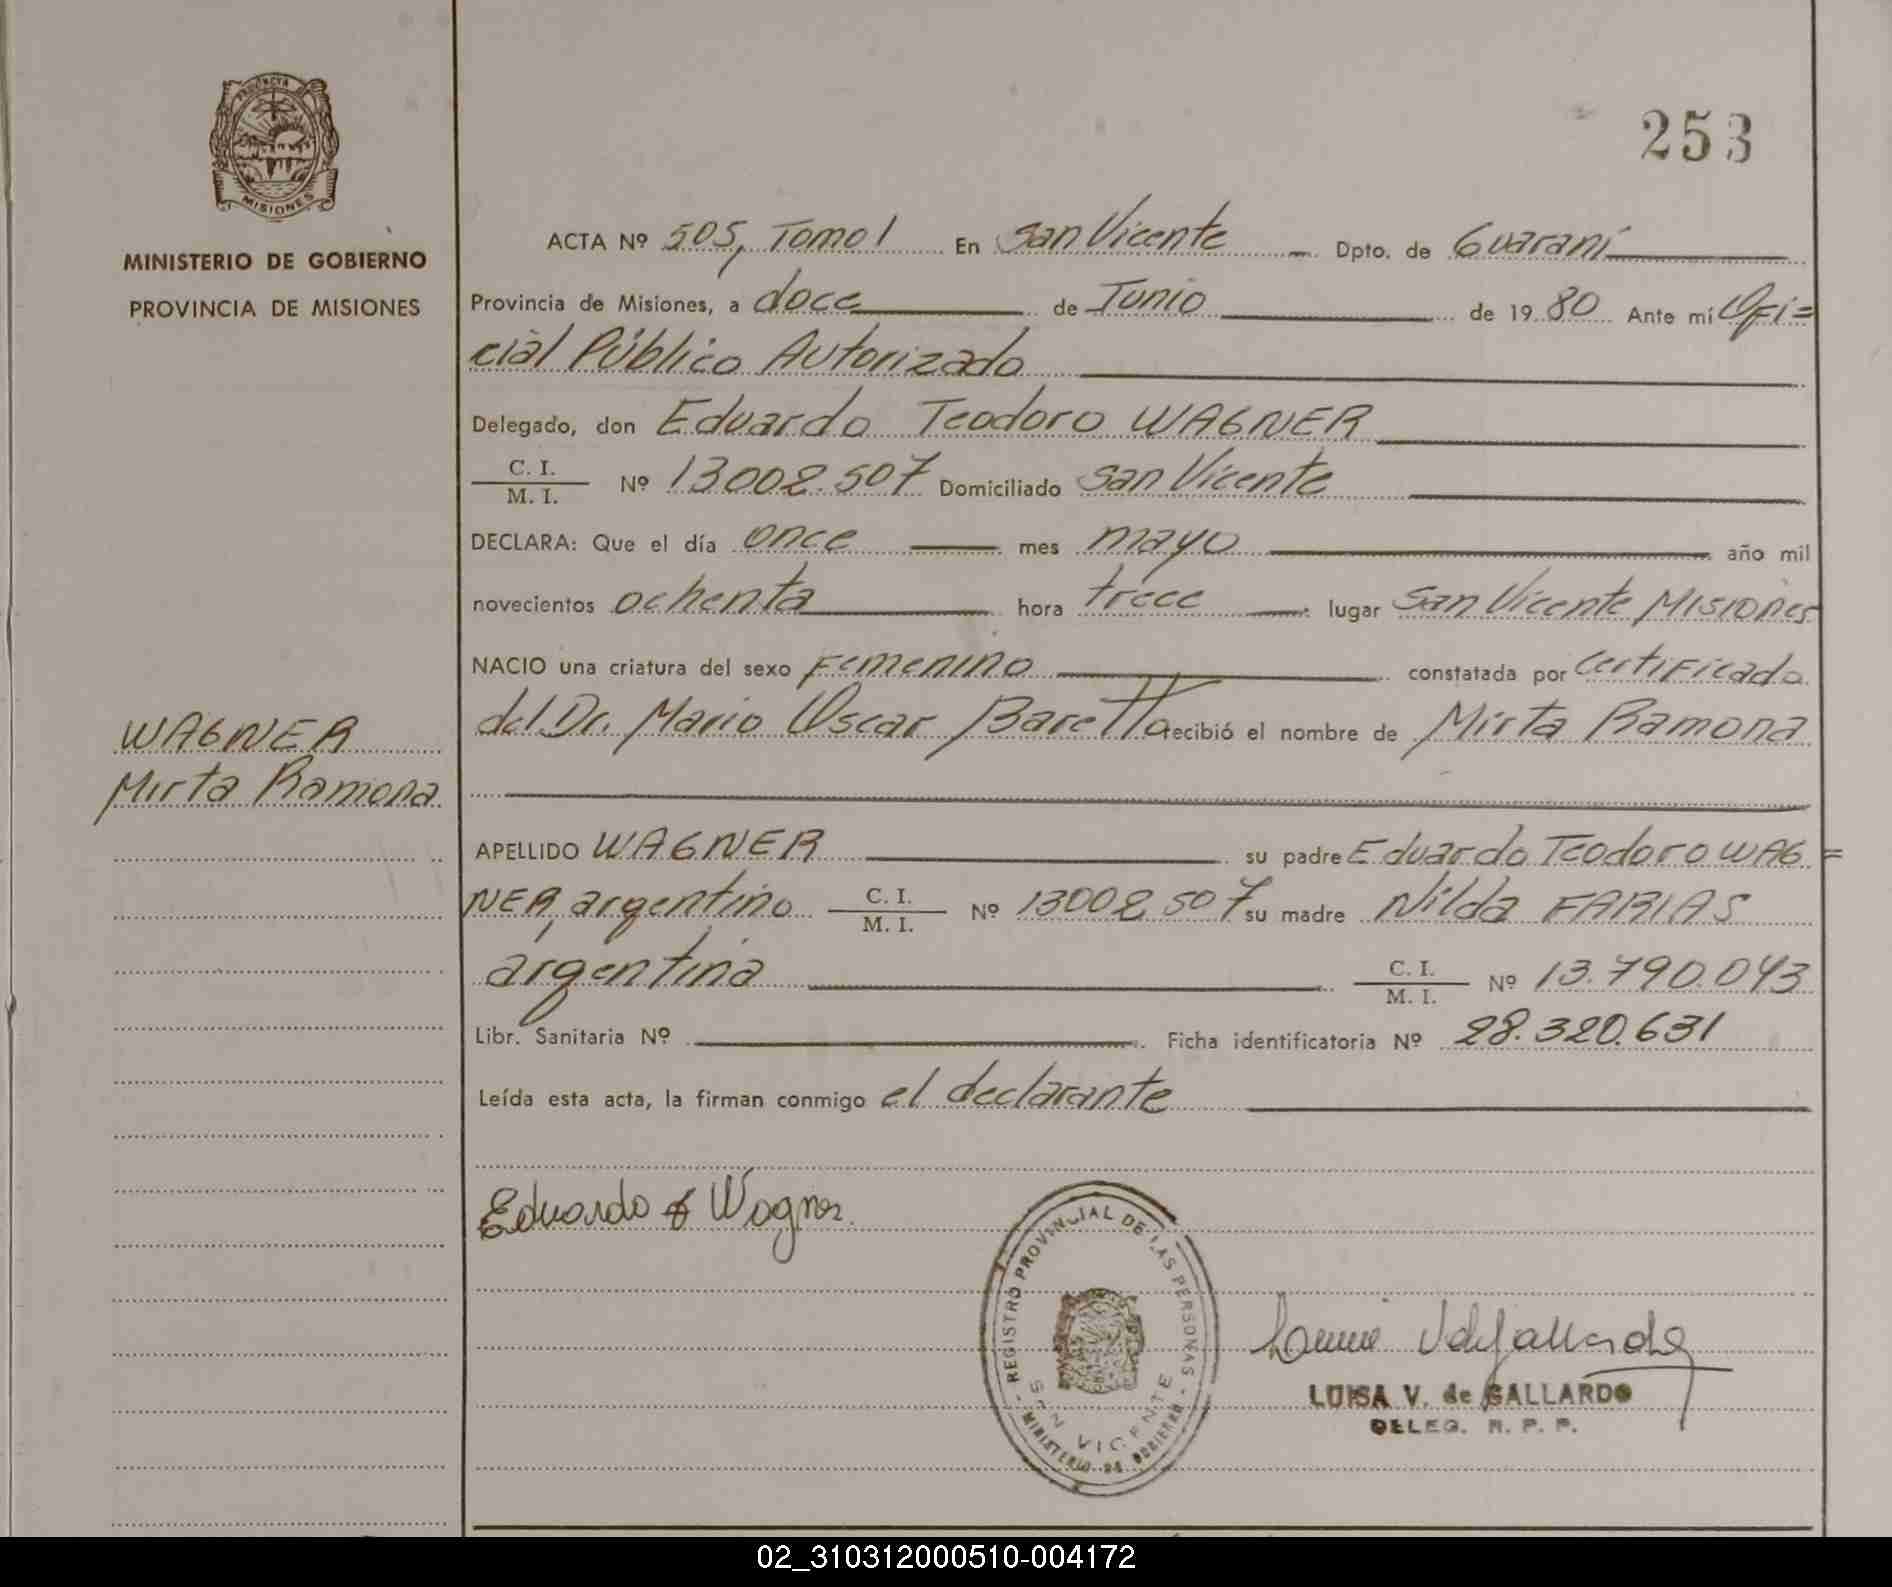 PROVINCIA
MISIONES
MINISTERIO DE GOBIERNO
PROVINCIA DE MISIONES
253
ACTA Nº 505, Tomo 1 En San Vicente Dpto. de Guaraní
Provincia de Misiones, a doce de Junio de 19 80 Ante mí Ofi=
cial Público Autorizado
Delegado, don Eduardo Teodoro WAGNER
C. I.
M. I. Nº 13002.507 Domiciliado San Vicente
DECLARA: Que el día once mes mayo año mil
novecientos ochenta hora trece lugar San Vicente Misiones
NACIO una criatura del sexo Femenino constatada por Certificado
del Dr. Mario Oscar Baretto recibió el nombre de Mirta Ramona
WAGNER
Mirta Ramona
APELLIDO WAGNER su padre Eduardo Teodoro WAG=
NER, argentino C. I.
M. I. Nº 13002.507 su madre Nilda FARIAS
argentina C. I.
M. I. Nº 13.790.043
Libr. Sanitaria Nº Ficha identificatoria Nº 28.320.631
Leída esta acta, la firman conmigo el declarante
Eduardo T Wagner
REGISTRO PROVINCIAL DE LAS PERSONAS
SAN VICENTE
MINISTERIO DE GOBIERNO
LUISA V. de GALLARDO
DELEG. R. P. P.
02_310312000510-004172